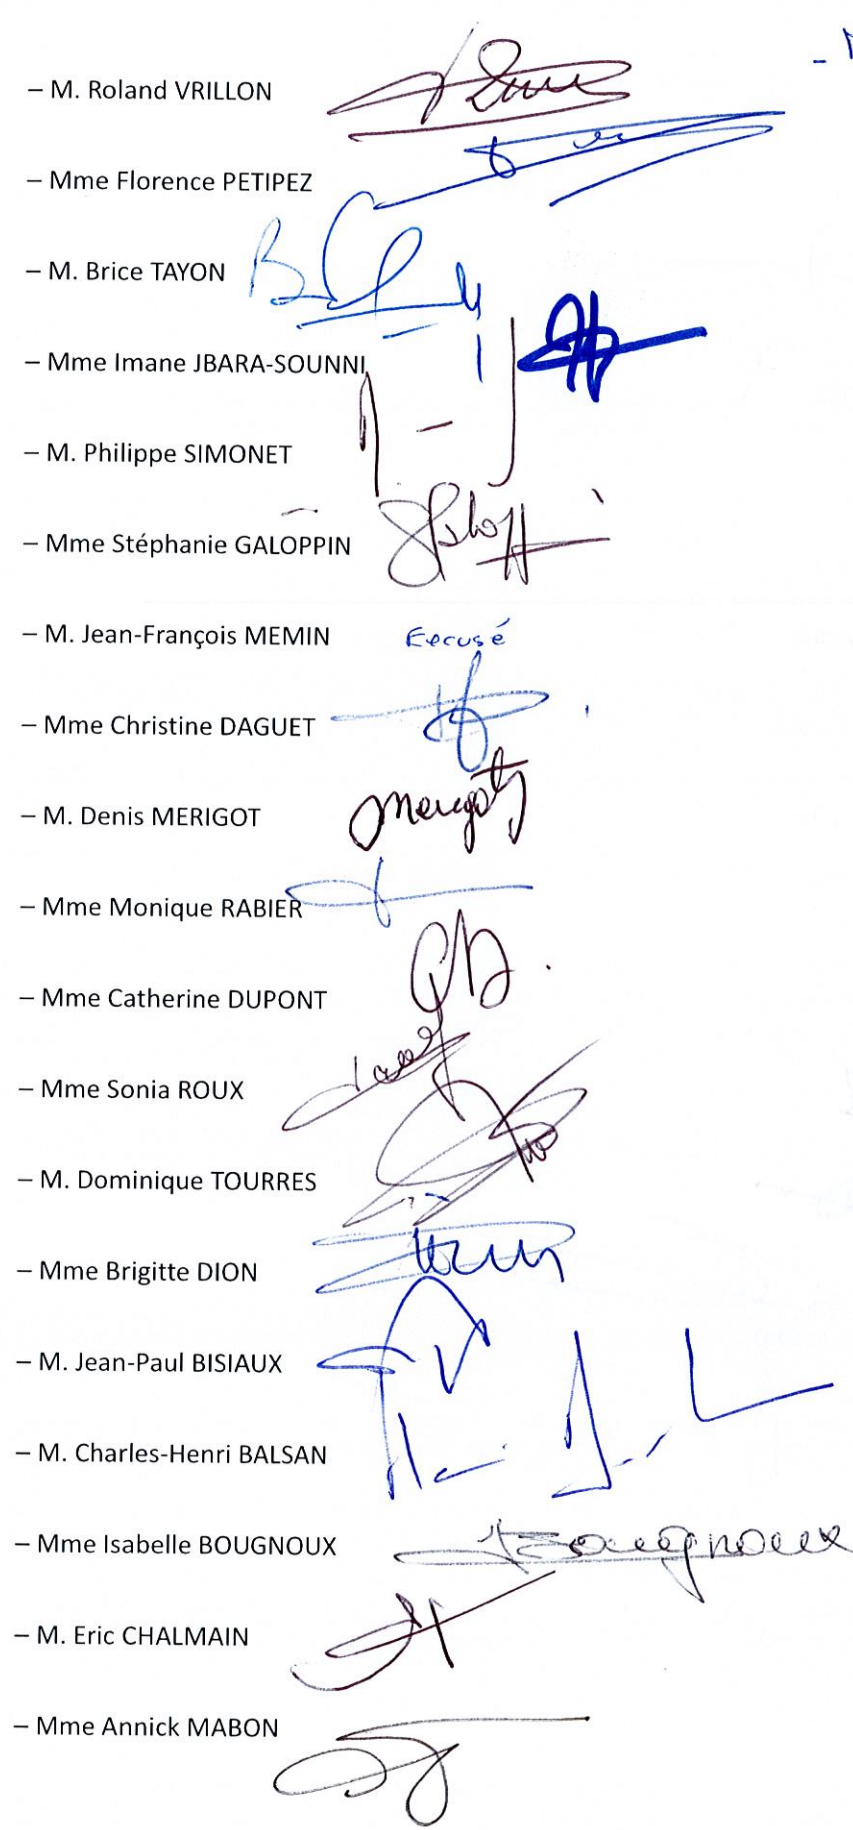 – M. Roland VRILLON
– Mme Florence PETIPEZ
– M. Brice TAYON
– Mme Imane JBARA-SOUNNI
– M. Philippe SIMONET
– Mme Stéphanie GALOPPIN
– M. Jean-François MEMIN Excusé
– Mme Christine DAGUET
– M. Denis MERIGOT Merigot
– Mme Monique RABIER
– Mme Catherine DUPONT
– Mme Sonia ROUX
– M. Dominique TOURRES
– Mme Brigitte DION
– M. Jean-Paul BISIAUX
– M. Charles-Henri BALSAN
– Mme Isabelle BOUGNOUX Bougnoux
– M. Eric CHALMAIN
– Mme Annick MABON